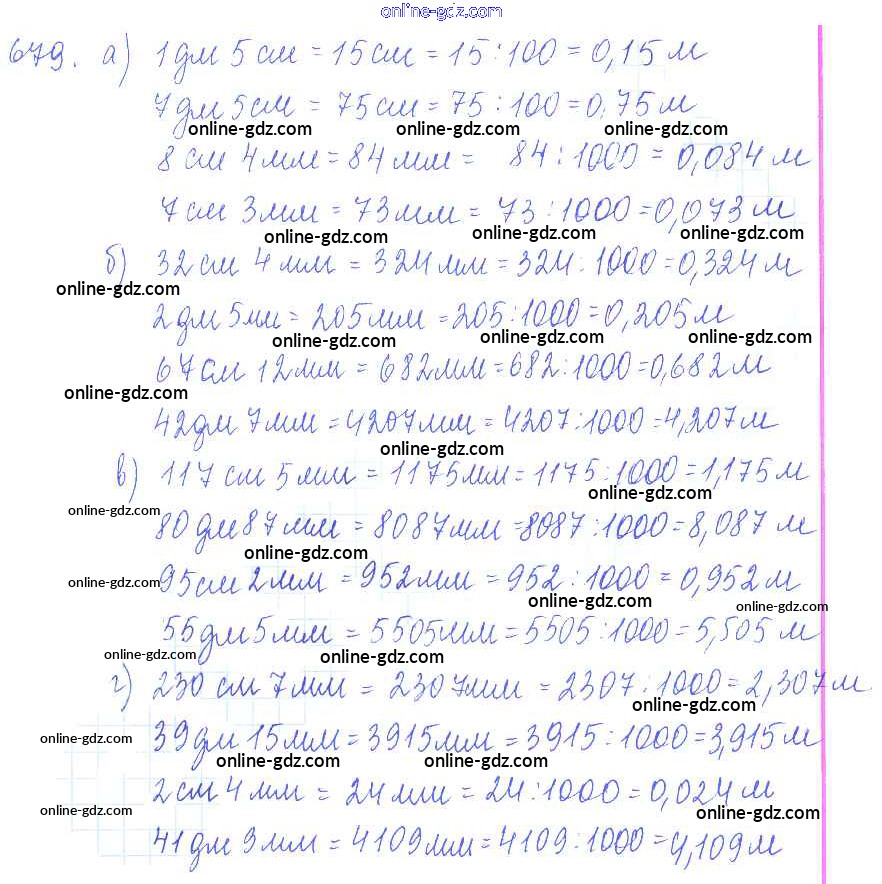 online-gdz.com
679. а) 1 дм 5 см = 15 см = 15 : 100 = 0,15 м
7 дм 5 см = 75 см = 75 : 100 = 0,75 м
online-gdz.com online-gdz.com online-gdz.com
8 см 4 мм = 84 мм = 84 : 1000 = 0,084 м
7 см 3 мм = 73 мм = 73 : 1000 = 0,073 м
online-gdz.com online-gdz.com online-gdz.com
б) 32 см 4 мм = 324 мм = 324 : 1000 = 0,324 м
online-gdz.com
2 дм 5 мм = 205 мм = 205 : 1000 = 0,205 м
online-gdz.com online-gdz.com online-gdz.com
67 см 12 мм = 682 мм = 682 : 1000 = 0,682 м
online-gdz.com
42 дм 7 мм = 4207 мм = 4207 : 1000 = 4,207 м
online-gdz.com
в) 117 см 5 мм = 1175 мм = 1175 : 1000 = 1,175 м
online-gdz.com
online-gdz.com
80 дм 87 мм = 8087 мм = 8087 : 1000 = 8,087 м
online-gdz.com online-gdz.com
online-gdz.com
95 см 2 мм = 952 мм = 952 : 1000 = 0,952 м
online-gdz.com online-gdz.com
55 дм 5 мм = 5505 мм = 5505 : 1000 = 5,505 м
online-gdz.com online-gdz.com
г) 230 см 7 мм = 2307 мм = 2307 : 1000 = 2,307 м
online-gdz.com
online-gdz.com
39 дм 15 мм = 3915 мм = 3915 : 1000 = 3,915 м
online-gdz.com online-gdz.com
2 см 4 мм = 24 мм = 24 : 1000 = 0,024 м
online-gdz.com online-gdz.com
41 дм 9 мм = 4109 мм = 4109 : 1000 = 4,109 м